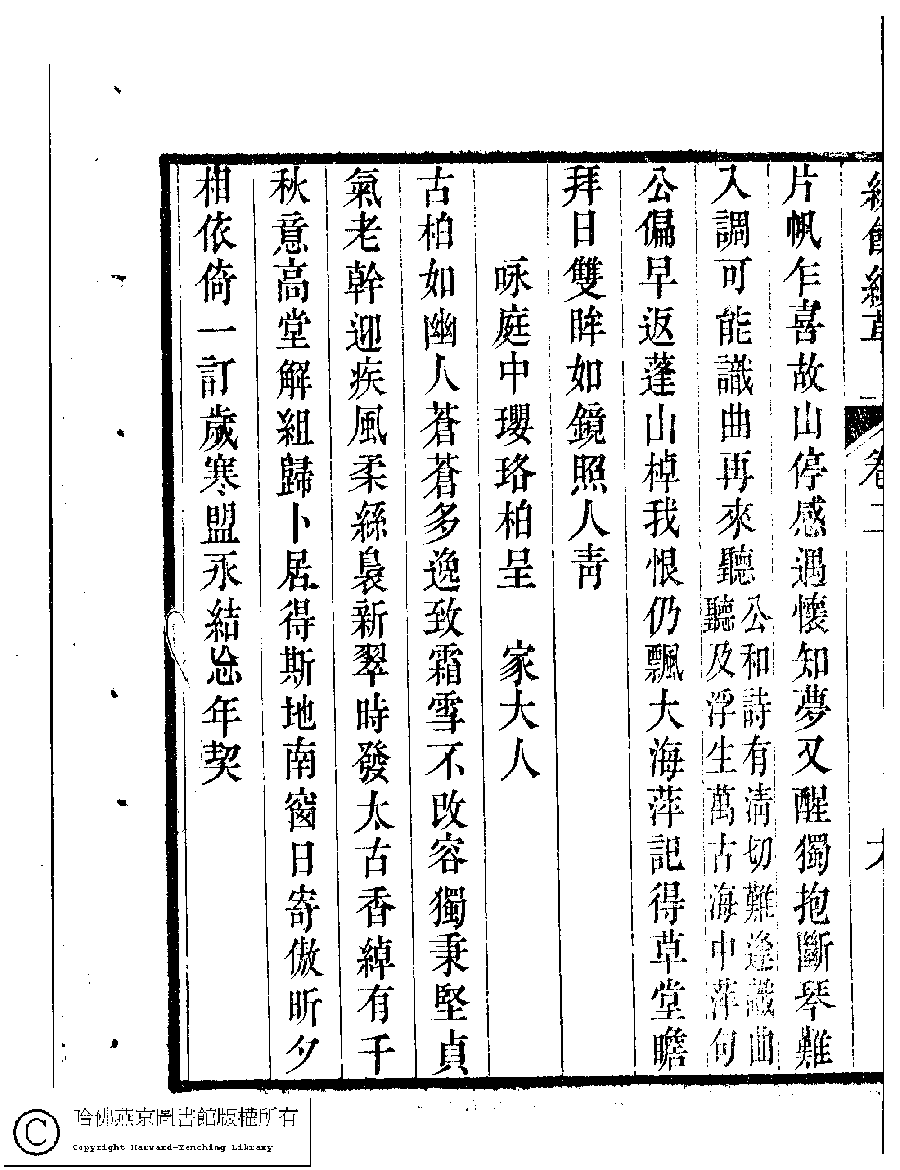 卷二
片帆乍喜故山停感遇懷知夢又醒獨抱斷琴難
入調可能識曲再來聽公和詩有清切難逢識曲
聽及浮生萬古海中萍句
公偏早返蓬山棹我恨仍飄大海萍記得草堂瞻
拜日雙眸如鏡照人青
咏庭中瓔珞柏呈 家大人
古柏如幽人蒼蒼多逸致霜雪不改容獨秉堅貞
氣老幹迎疾風柔絲裊新翠時發太古香綽有千
秋意高堂解組歸卜居得斯地南窗日寄傲昕夕
相依倚一訂歲寒盟永結忘年契
哈佛燕京圖書館版權所有
Copyright Harvard-Yenching Library